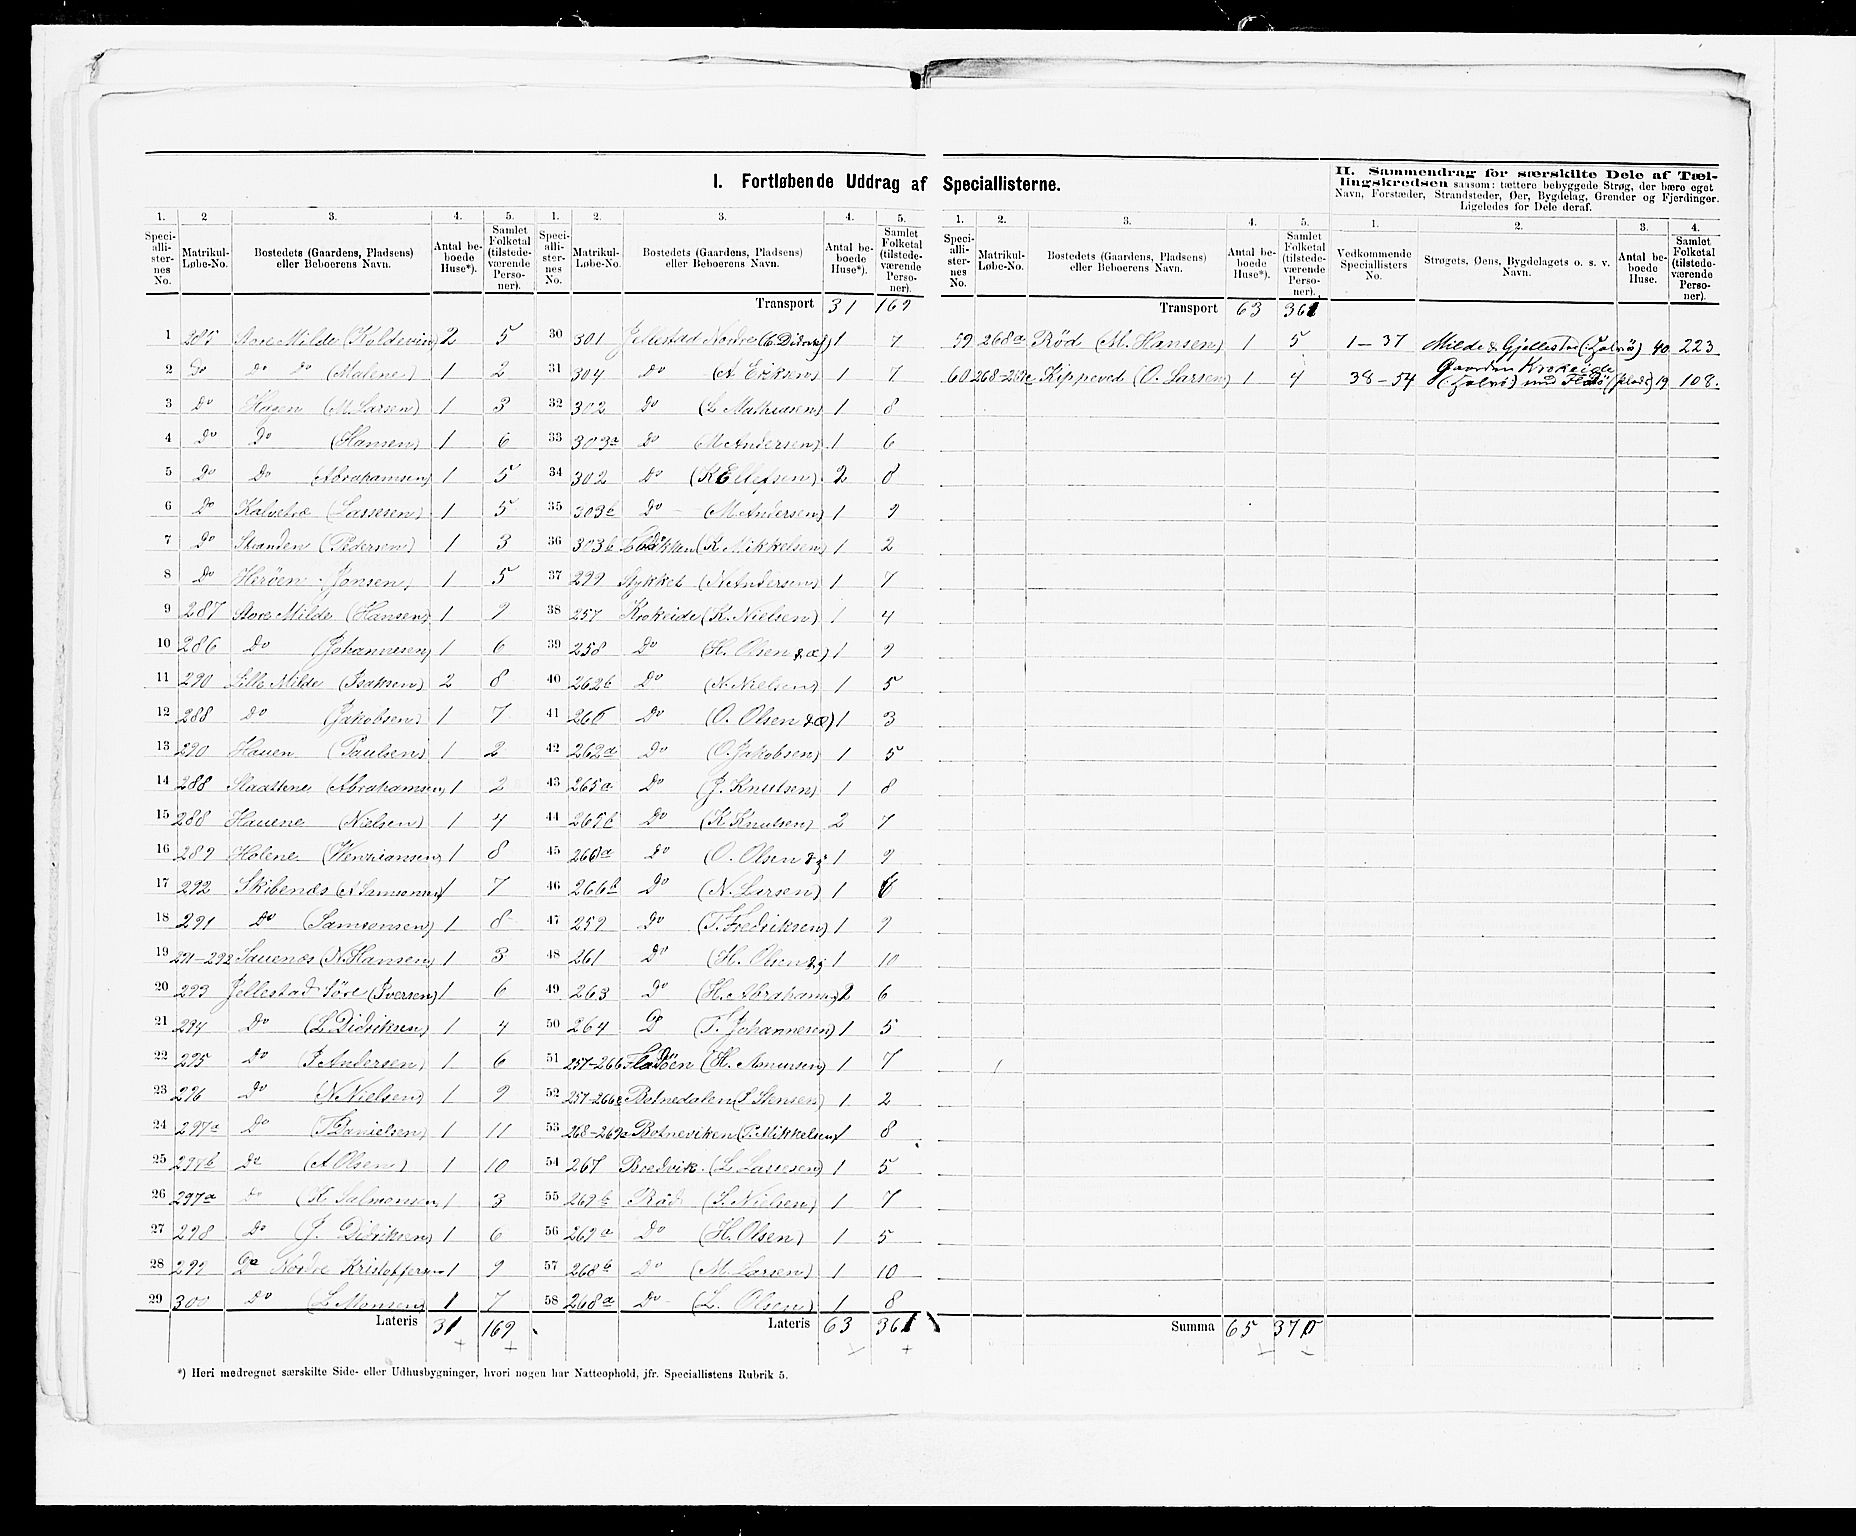 I. Fortløbende Uddrag af Speciallisterne.
1. 2 3. 4. 5.
Speciallisternes No. Matrikul-Løbe-No. Bostedets (Gaardens, Pladsens) eller Beboerens Navn. Antal beboede Huse*). Samlet Folketal (tilstedeværende Personer).
1 285 Store Milde (Koldevin) 2 5
2 Do Do Do (Malene) 1 2
3 Do Hagen (M. Larsen) 1 3
4 Do Do (Hansen) 1 6
5 Do Do (Abrahamsen) 1 5
6 Do Kalvetræ (Lassesen) 1 5
7 Do Stranden (Pedersen) 1 3
8 Do Herøen (Jonsen) 1 5
9 287 Store Milde (Hansen) 1 9
10 286 Do (Johannesen) 1 6
11 290 Lille Milde (Isaksen) 2 8
12 288 Do (Jakobsen) 1 7
13 290 Hauen (Paulsen) 1 2
14 288 Slaattene (Abrahamsen) 1 2
15 288 Hauene (Nielsen) 1 4
16 289 Holene (Henriksen) 1 8
17 292 Skibenæs (A Samsonsen) 1 7
18 291 Do (Samsonsen) 1 8
19 291-292 Sauenæs (N. Hansen) 1 3
20 293 Jellestad Søre (Iversen) 1 6
21 294 Do (L. Didriksen) 1 4
22 295 Do (J. Andersen) 1 6
23 296 Do (N. Nielsen) 1 9
24 297a Do (T. Danielsen) 1 11
25 297b Do (A Olsen) 1 10
26 297a Do (K Salmonsen 1 3
27 298 Do (J. Didriksen) 1 6
28 299 Do Nordre Kristoffersen 1 9
29 300 Do (L. Monsen) 1 7
Lateris 31 169
1. 2. 3. 4. 5.
Speciallisternes No. Matrikul-Løbe-No. Bostedets (Gaardens, Pladsens) eller Beboerens Navn. Antal beboede Huse*). Samlet Folketal (tilstedeværende Personer).
Transport 31 169
30 301 Jellestad Nordre (C. Didriks) 1 7
31 304 Do (A Eriksen) 1 7
32 302 Do (L Mathiasen) 1 8
33 303a Do (M Andersen) 1 6
34 302 Do (K Ellefsen) 2 8
35 303b Do (M Andersen) 1 9
36 303b (K Mikkelsen) 1 2
37 299 Stykket (N. Andersen) 1 7
38 257 Krokeide (K. Nielsen) 1 4
39 258 Do (H. Olsen d æ) 1 9
40 262b Do (N. Nielsen) 1 5
41 266 Do (O. Olsen d æ) 1 3
42 262a Do (O. Jakobsen) 1 5
43 265a Do (J. Knutsen) 1 8
44 265b Do (K Knutsen) 2 7
45 266a Do (O. Olsen d y 1 9
46 266b Do (N. Larsen) 1 6
47 259 Do (T. Fredriksen) 1 9
48 261 Do (H. Olsen d y 1 10
49 263 Do (H. Abrahams) 6
50 264 Do (T. Johannesen) 1 5
51 257-266 Fladøen (H. Amunsen) 1 7
52 257-266 Botnedalen (S Stensen) 1 2
53 268-269a Botneviken (P. Mikkelsen) 1 8
54 267 Bredvik (L. Lassesen) 1 5
55 269b Rød (S. Nielsen) 1 7
56 269a Do (H. Olsen) 1 5
57 268b Do (M. Larsen) 1 10
58 268a Do (L. Olsen) 1 8
Lateris 63 361
1. 2. 3. 4. 5.
Speciallisternes No. Matrikul-Løbe-No. Bostedets (Gaardens, Pladsens) eller Beboerens Navn. Antal beboede Huse*). Samlet Folketal (tilstedeværende Personer).
Transport 63 361
59 268a Rød (M. Hansen) 1 5
60 268-269a Kippeved (O. Larsen) 1 4
Summa 65 370
II. Sammendrag for særskilte Dele af Tællingskredsen saasom: tættere bebyggede Strøg, der bære eget Navn, Forstæder, Strandsteder, Øer, Bygdelag, Grender og Fjerdinger. Ligeledes for Dele deraf.
1. 2. 3. 4.
Vedkommende Speciallisters No. Strøgets, Øens, Bygdelagets o. s. v. Navn. Antal beboede Huse. Samlet Folketal (tilstedeværende Personer).
1-37 Milde & Gjellestad 40 223
38-54 Gaarden Krokeide med Fladø 19 108.
*) Heri medregnet særskilte Side- eller Udhusbygninger, hvori nogen har Natteophold, jfr. Speciallistens Rubrik 5.